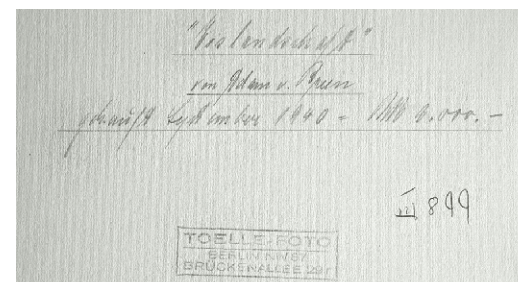 von Adam v. Breen
gekauft September 1940 = RM 9.000.-
III 899
TOELLE-FOTO
BERLIN NW 87
BRÜCKENALLEE 29